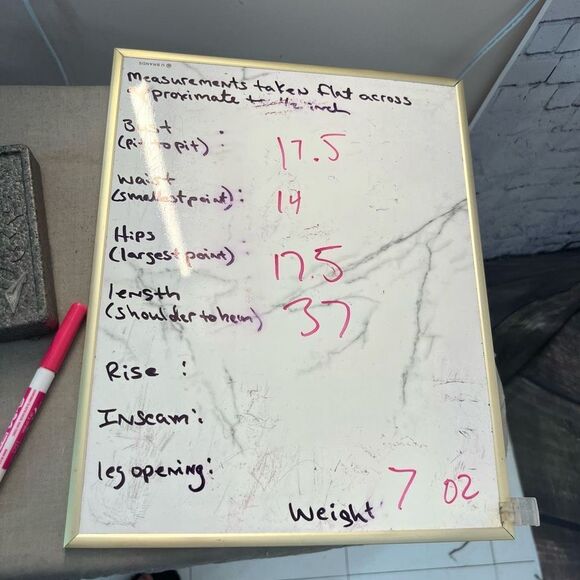 U BRANDS
Measurements taken flat across
approximate to ½ inch
Bust :
(pit to pit) : 17.5
waist
(smallest point) : 14
Hips
(largest point) 17.5
length
(shoulder to hem) 37
Rise :
Inseam :
leg opening :
Weight 7 oz